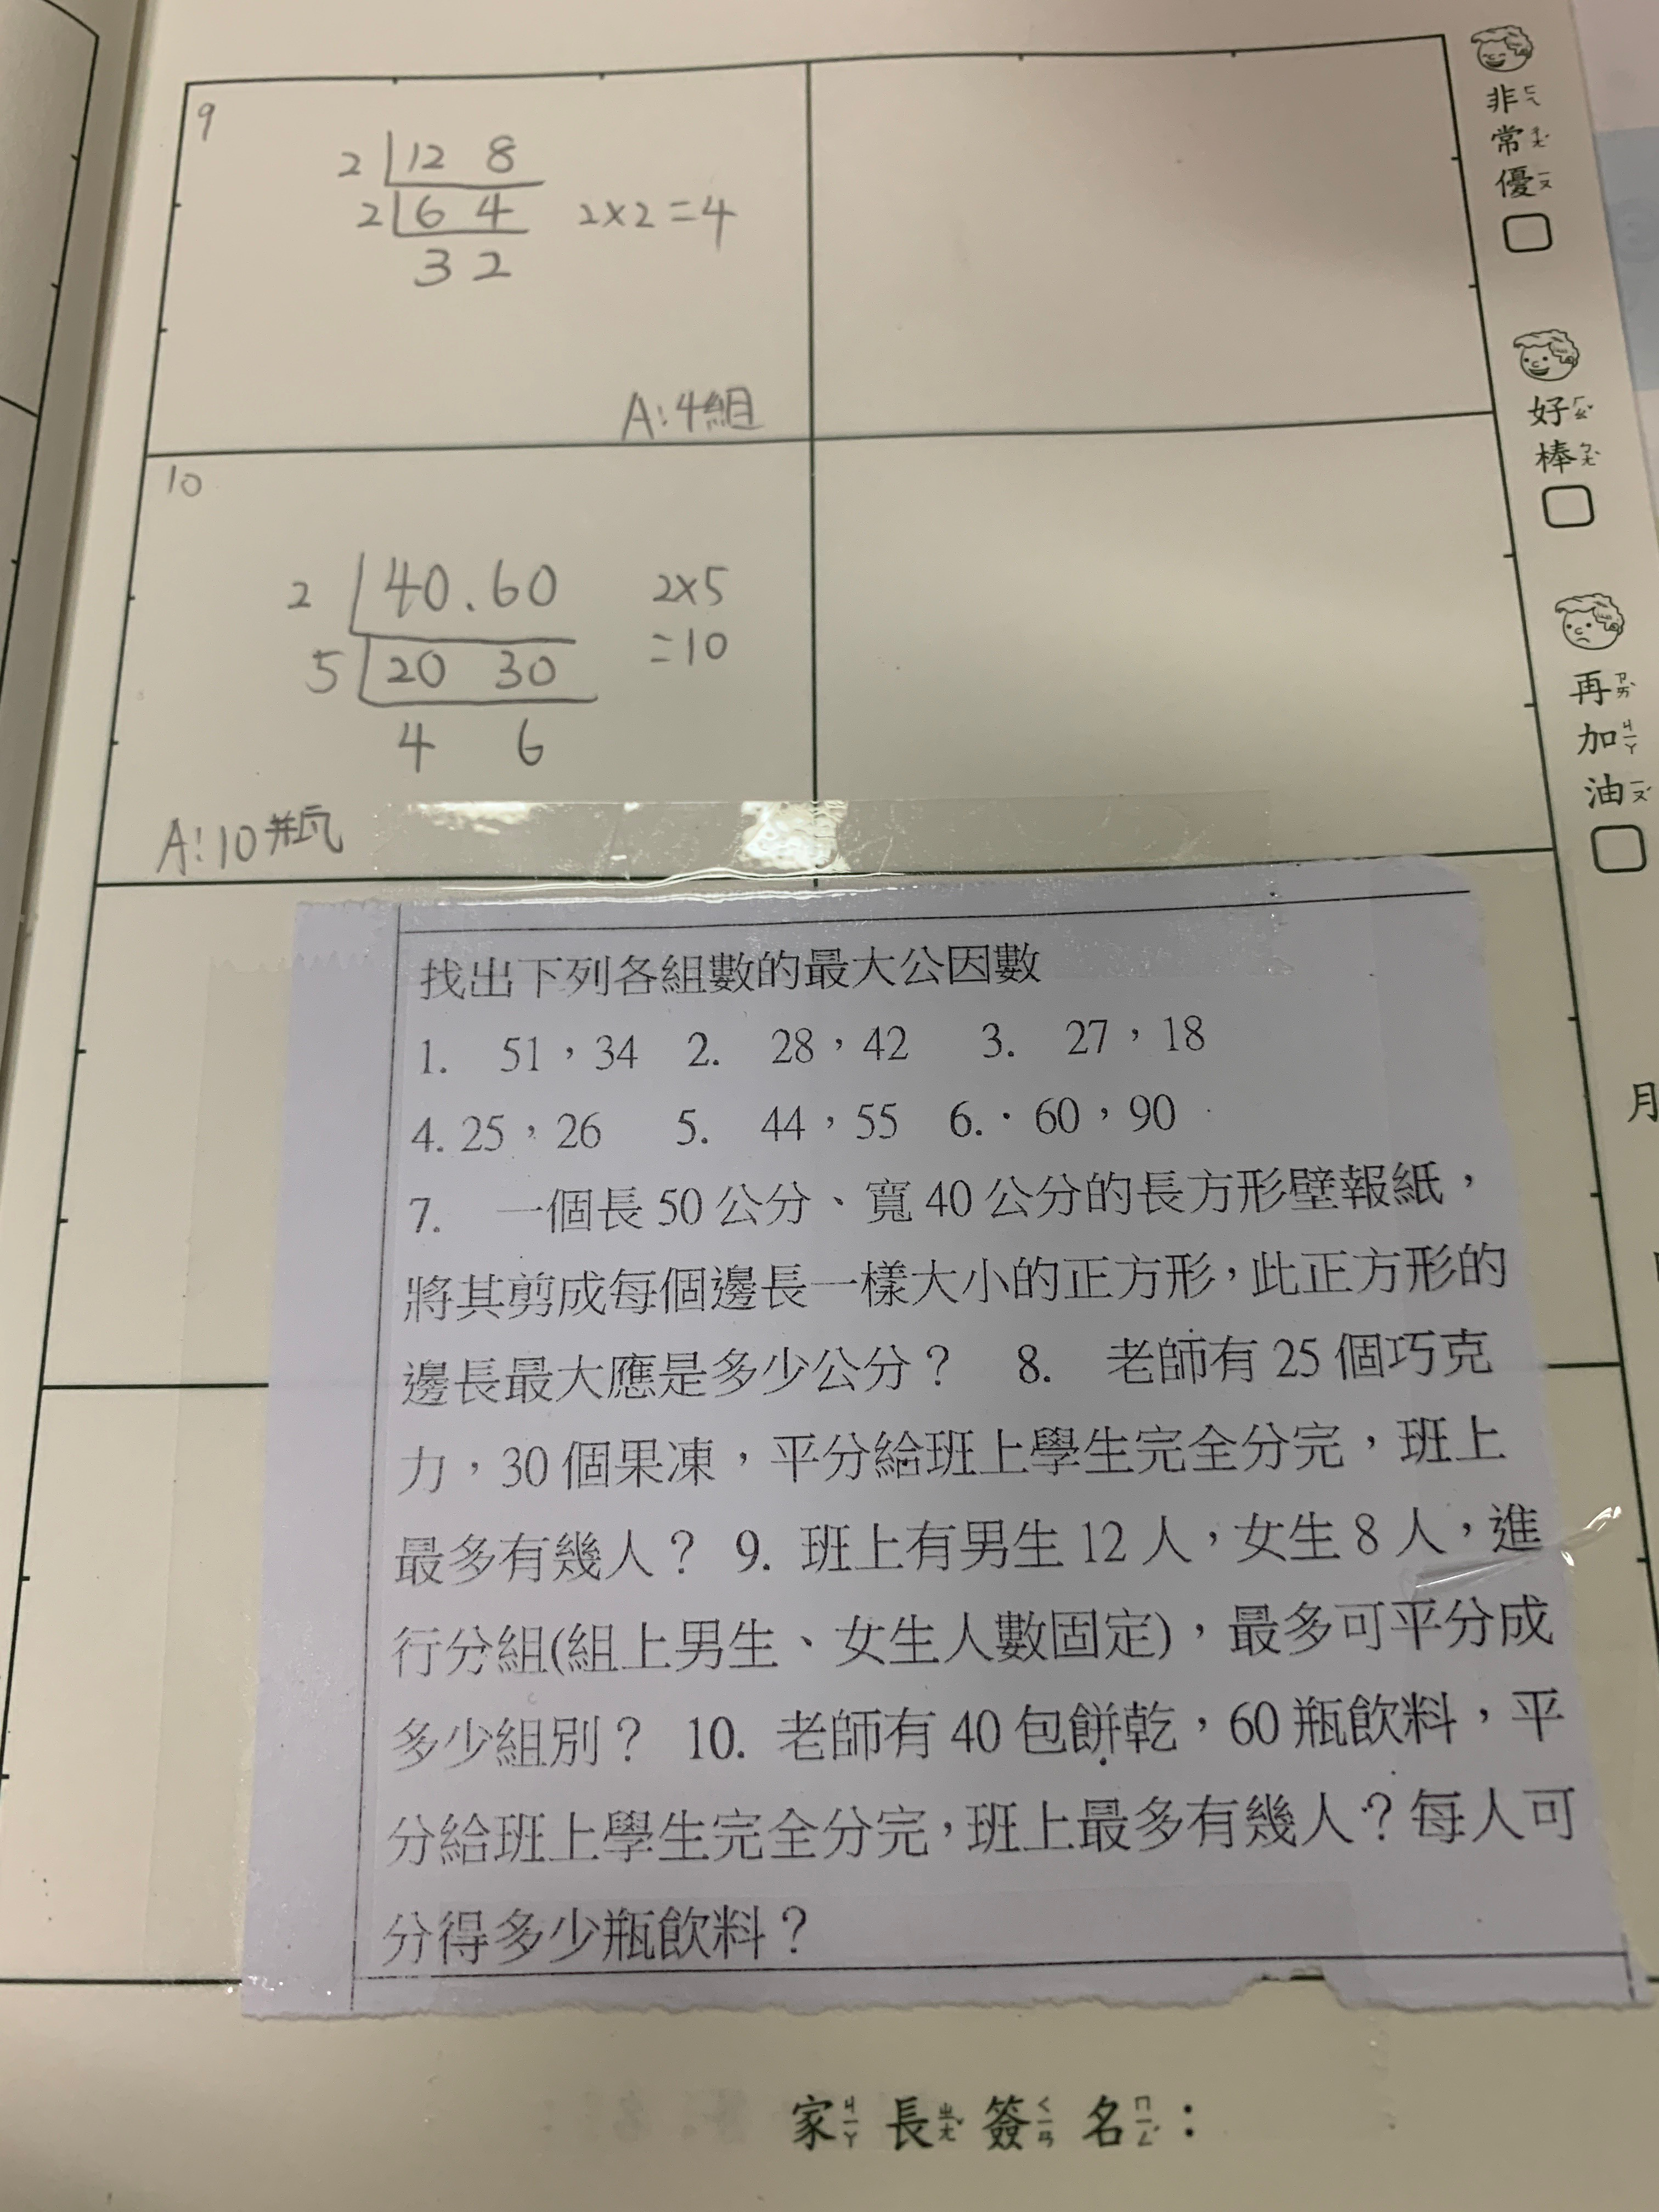 9
2 12 8
2 6 4 2×2=4
3 2
A:4組
10
2 40.60 2×5
5 20 30 =10
4 6
A:10瓶
找出下列各組數的最大公因數
1. 51,34 2. 28,42 3. 27,18
4. 25,26 5. 44,55 6.· 60,90
7. 一個長50公分、寬40公分的長方形壁報紙,
將其剪成每個邊長一樣大小的正方形,此正方形的
邊長最大應是多少公分? 8. 老師有25個巧克
力,30個果凍,平分給班上學生完全分完,班上
最多有幾人? 9. 班上有男生12人,女生8人,進
行分組(組上男生、女生人數固定),最多可平分成
多少組別? 10. 老師有40包餅乾,60瓶飲料,平
分給班上學生完全分完,班上最多有幾人?每人可
分得多少瓶飲料?
家ㄐㄧㄚ長ㄓㄤˇ簽ㄑㄧㄢ名ㄇㄧㄥˊ:
非ㄈㄟ
常ㄔㄤˊ
優ㄧㄡ
好ㄏㄠˇ
棒ㄅㄤˋ
再ㄗㄞˋ
加ㄐㄧㄚ
油ㄧㄡˊ
月